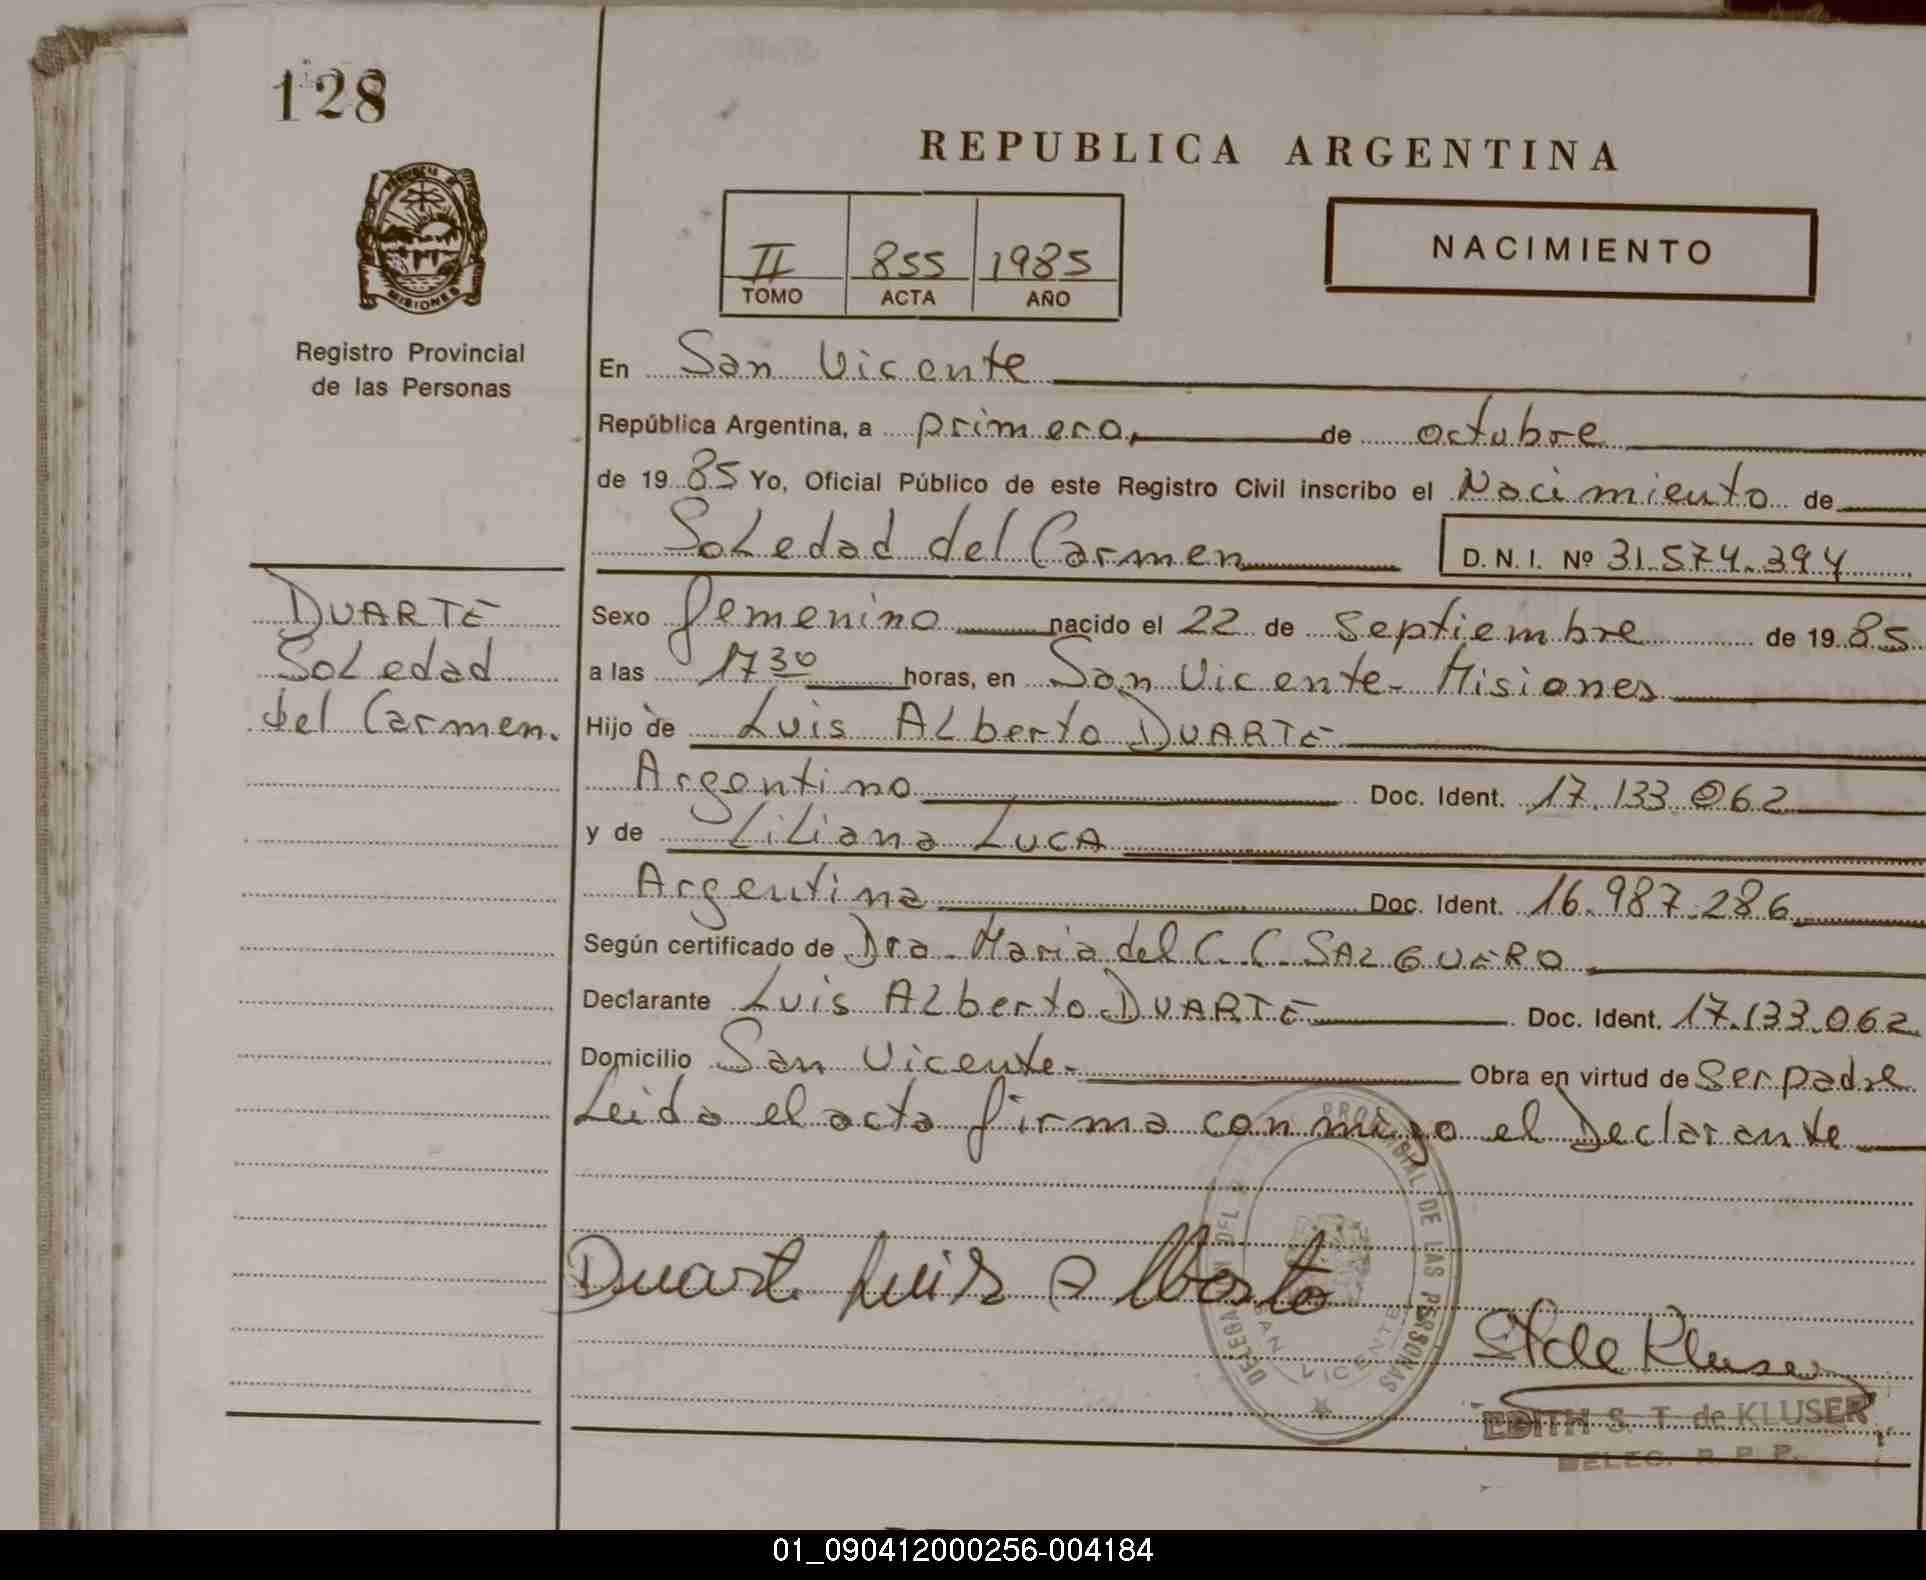 128
REPUBLICA ARGENTINA
PROVINCIA D
MISIONES
II 855 1985
TOMO ACTA AÑO
NACIMIENTO
Registro Provincial
de las Personas
En San Vicente
República Argentina, a primero, de octubre
de 19 85 Yo, Oficial Público de este Registro Civil inscribo el Nacimiento de
Soledad del Carmen D. N. I. Nº 31.574.394
DUARTE
Soledad
del Carmen.
Sexo femenino nacido el 22 de Septiembre de 19 85
a las 17 30 horas, en San Vicente - Misiones
Hijo de Luis Alberto DUARTE
Argentino Doc. Ident. 17.133.062
y de Liliana LUCA
Argentina Doc. Ident. 16.987.286
Según certificado de Dra. Maria del C. C. SALGUERO
Declarante Luis Alberto DUARTE Doc. Ident. 17.133.062
Domicilio San Vicente- Obra en virtud de Ser padre
Leida el acta firma conmigo el Declarante
PROVINCIAL DE LAS PERSONAS
SAN VICENTE
Duart. Luis Alberto
de Kluser
EDITH S. T. de KLUSER
DELEG. R. P. P.
01_090412000256-004184